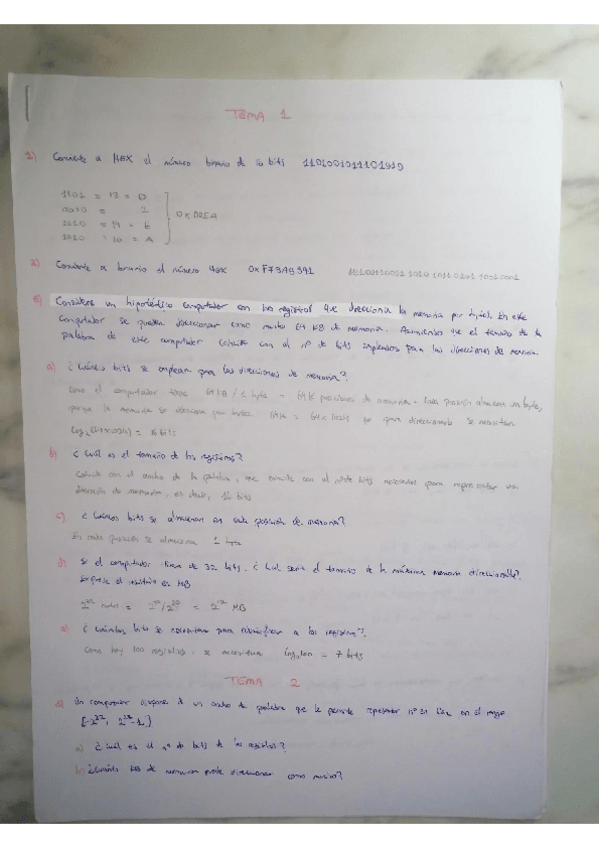 TEMA 1
1) Convierte a HEX el número binario de 16 bits 1101001011101010
1101 = 13 = D
0010 = 2
1110 = 14 = E
1010 = 10 = A
0xD2EA
2) Convierte a binario el número HEX 0xF73AB391
3) Considere un hipotético computador con 100 registros que direcciona la memoria por bytes. En este
computador se pueden direccionar como mucho 64 KB de memoria. Asumiendo que el tamaño de la
palabra de este computador coincide con el nº de bits empleados para las direcciones de memoria.
a) ¿Cuántos bits se emplean para las direcciones de memoria?
Como el computador tiene 64 KB / 1 byte = 64 K posiciones de memoria. Cada posición almacena un byte,
porque la memoria se direcciona por bytes. 64K = 64 x 1024 por para direccionarlo se necesitan
log₂(64x1024) = 16 bits
b) ¿Cuál es el tamaño de los registros?
Coincide con el ancho de la palabra, que coincide con el nº de bits necesarios para representar una
dirección de memoria, es decir, 16 bits
c) ¿Cuántos bits se almacenan en cada posición de memoria?
En cada posición se almacena 1 byte
d) Si el computador fuera de 32 bits. ¿Cuál sería el tamaño de la máxima memoria direccionable?
Exprese el resultado en MB
2³² bytes = 2³²/2²⁰ = 2¹² MB
e) ¿Cuántos bits se necesitan para identificar a los registros?
Como hay 100 registros, se necesitan log₂100 = 7 bits
TEMA 2
Un computador dispone de un ancho de palabra que le permite representar nº en en el rango
a) ¿Cuál es el nº de bits de los registros?
b) ¿Cuánta de memoria puede direccionar como máximo?